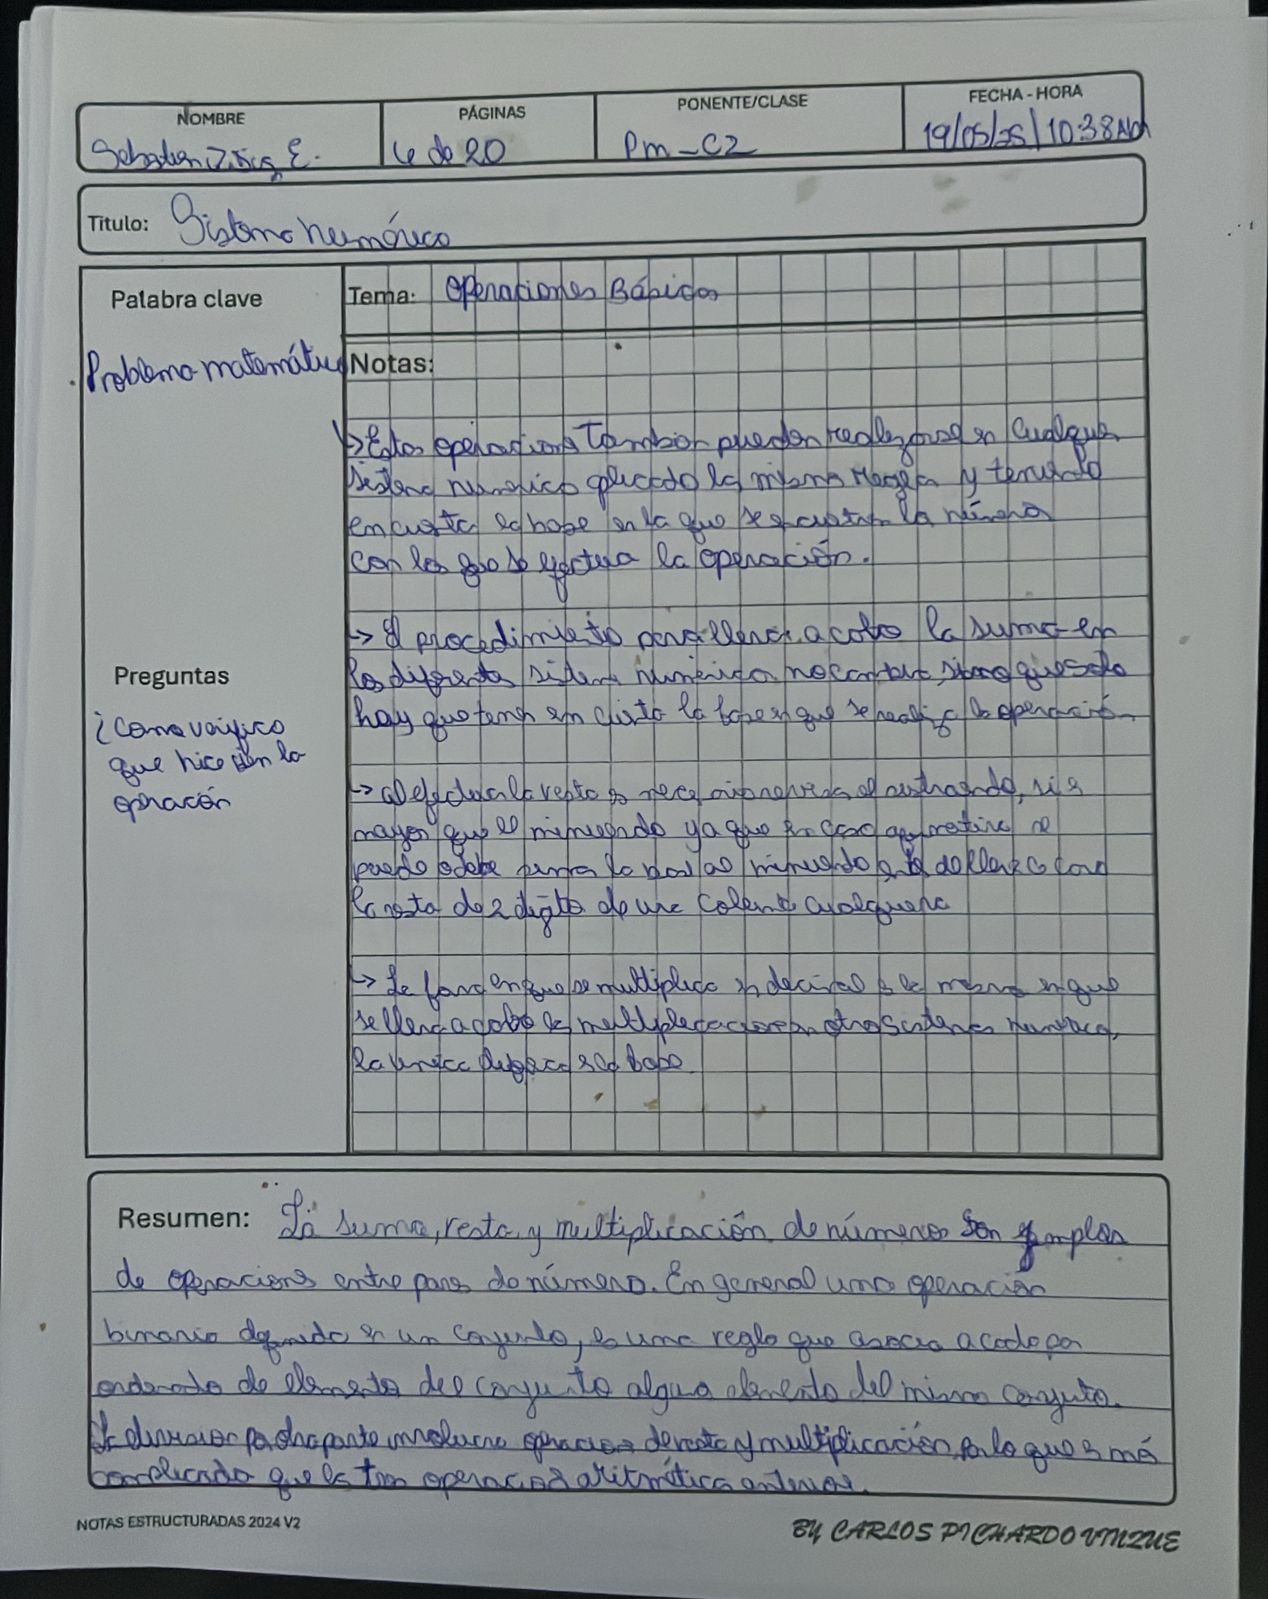 NOMBRE
PÁGINAS
PONENTE/CLASE
FECHA - HORA
E.
4 de 20
Pm-C2
19/05/25/10:38 AM
Título: Sistema numérico
Palabra clave
Tema: Operaciones Básicas
Problema matemático
Notas:
→ Estas operaciones también pueden realizarse en cualquier
sistema numérico aplicado la misma regla y teniendo
en cuenta la base en la que se la número
con los que se efectua la operación.
→ El procedimiento para llevar a cabo la suma en
los diferentes sistema numérico no cambia, sino que solo
hay que tener en cuenta la base en que se realiza la operación
Preguntas
¿Como verifico
que hice bien la
operación
→ al efectuar la resta es el sustraendo, si es
mayor que el minuendo ya que en caso se
puede o debe la base al minuendo llevar a cabo
la resta de 2 digito de una columna cualquiera
→ La forma en que se multiplica en decimal es la misma en que
se lleva a cabo la multiplicación en otro sistema numérico,
la única es la base
Resumen: La suma, resta, y multiplicación de números son ejemplos
de operaciones entre pares de número. En general una operación
binaria definida en un conjunto, es una regla que asocia a cada par
ordenado de elementos del conjunto algun elemento del mismo conjunto.
La division por otra parte involucra operaciones de resta y multiplicación, por lo que es más
complicado que las tres operaciones aritmética anterior.
NOTAS ESTRUCTURADAS 2024 V2
BY CARLOS PICHARDO VIUQUE